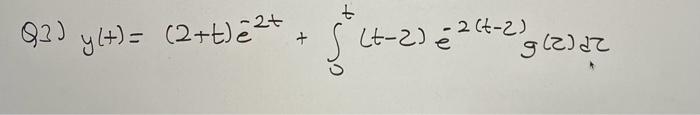 Q3) y(t) = (2+t)e^{-2t} + ∫_0^t (t-2) e^{-2(t-2)} g(2) d2